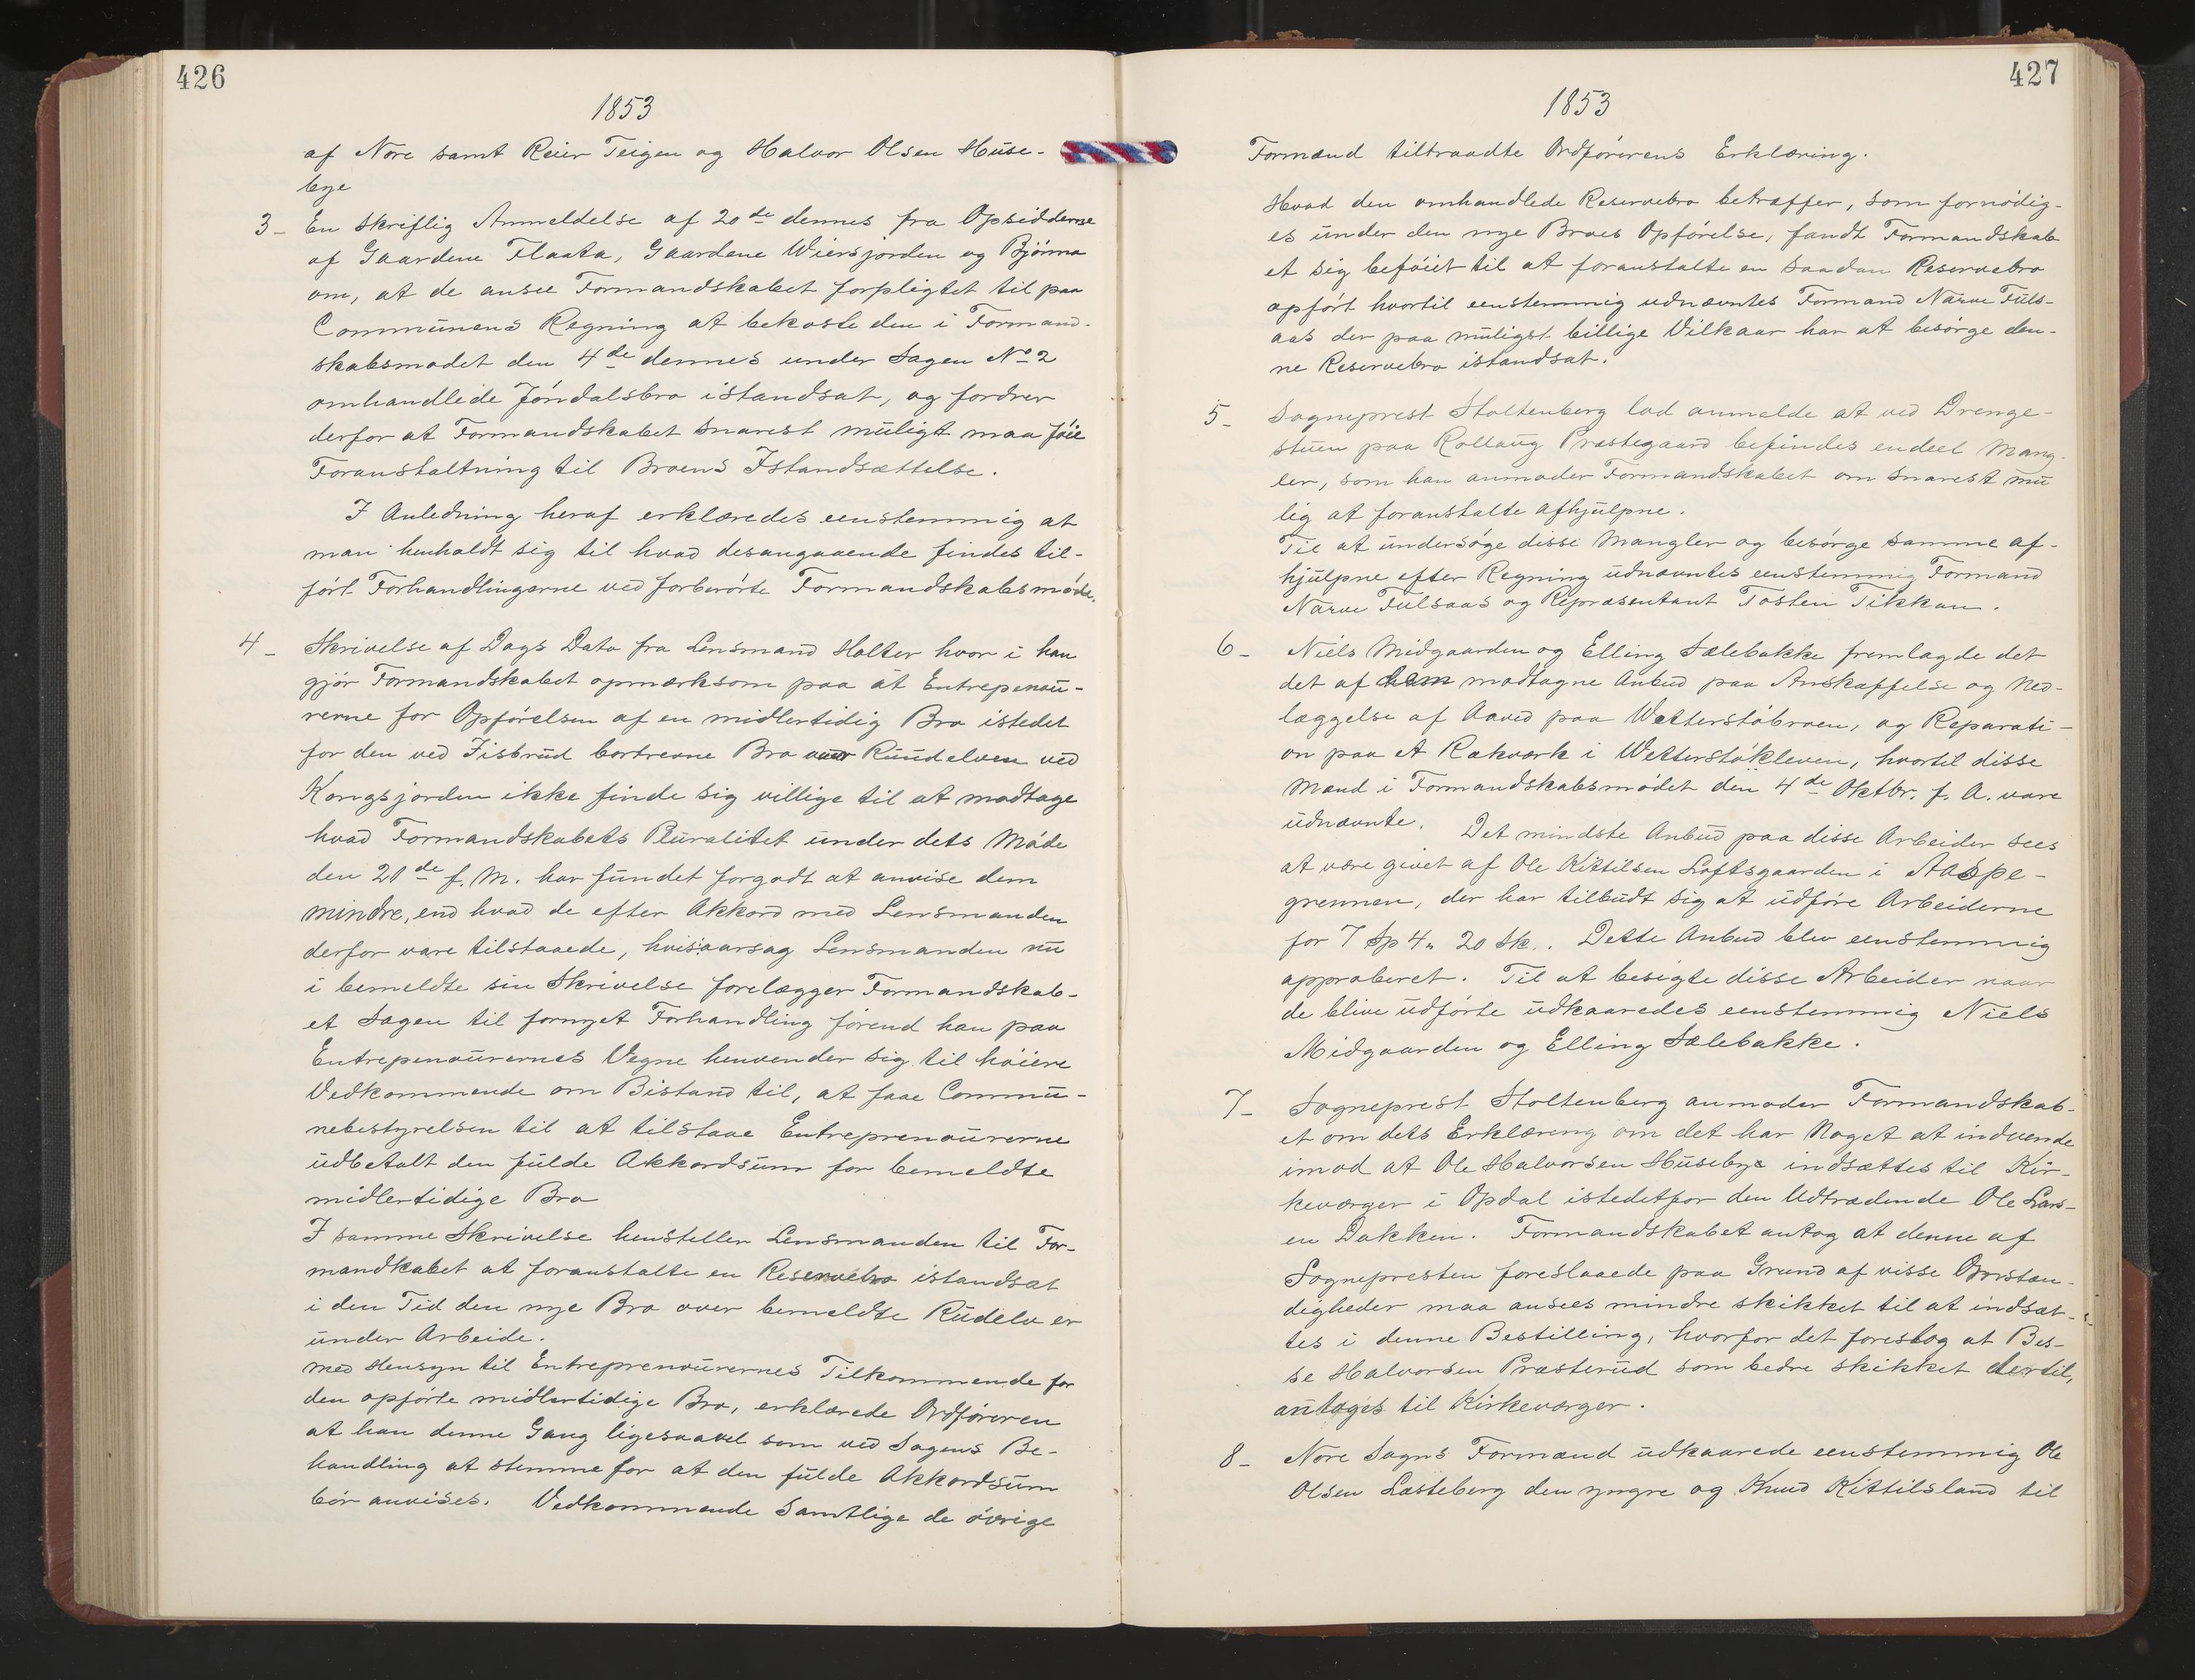 426
1853
af Nore samt Reier Teigen og Halvor Olsen Huse-
bye
3- En skriflig Anmeldelse af 20de dennes fra Opsidderne
af Gaardene Flaata, Gaardene Wiersjorden og Bjørma
om, at de ansee Formandskabet forpligtet til paa
Communens Regning at bekoste den i Formand-
skabsmødet den 4de dennes under Sagen No 2
omhandlede Jøndalsbro istandsat, og fordrer
derfor at Formandskabet snarest muligt maa føie
Foranstaltning til Broens Istandsættelse.
I Anledning heraf erklæredes eenstemmig at
man henholdt sig til hvad desangaaende findes til-
ført Forhandlingerne ved forberørte Formandskabsmøde.
4- Skrivelse af Dags Dato fra Lensmand Holter hvor i han
gjør Formandskabet opmærksom paa at Entrepenøu-
rerne for Opførelsen af en midlertidig Bro istedet
for den ved Iisbrud bortrevne Bro over Ruudelven ved
Kongsjorden ikke finde sig villige til at modtage
hvad Formandskabets Pluralitet under dets Møde
den 20de f. M. har fundet forgodt at anvise dem
mindre, end hvad de efter Akkord med Lensmanden
derfor vare tilstaaede, hvisaarsag Lensmanden nu
i bemeldte sin Skrivelse forelægger Formandskab-
et Sagen til fornyet Forhandling førend han paa
Entrepenøurernes Vegne henvender sig til høiere
Vedkommende om Bistand til, at faae Commu-
nebestyrelsen til at tilstaae Entreprenøurerne
udbetalt den fulde Akkordsum for bemeldte
midlertidige Bro
I samme Skrivelse henstiller Lensmanden til For-
mandkabet at foranstalte en Reservebro istandsat
i den Tid den nye Bro over bemeldte Rudelv er
under Arbeide.
Med Hensyn til Entreprenøurernes Tilkommende for
den opførte midlertidige Bro, erklærede Ordføreren
at han denne Gang ligesaavel som ved Sagens Be-
handling at stemme for at den fulde Akkordsum
bør anvises. Vedkommende Samtlige de øvrige
427
1853
Formænd tiltraadte Ordførerens Erklæring.
Hvad den omhandlede Reservebro betræffer, som fornødig-
es under den nye Broes Opførelse, fandt Formandskab
et sig beføiet til at foranstalte en saadan Reservebro
opført hvortil eenstemmig udnævntes Formand Narve Fuls-
aas der paa muligst billige Vilkaar har at besørge den-
ne Reservebro istandsat.
5- Sogneprest Stoltenberg lod anmelde at ved Drenge-
stuen paa Rollaug Præstegaard befindes endeel Mang-
ler, som han anmoder Formandskabet om snarest mu
lig at foranstalte afhjulpne.
Til at undersøge disse Mangler og besørge samme af-
hjulpne efter Regning udnævntes eenstemmig Formand
Narve Fulsaas og Repræsentant Tosten Tikkun.
6- Niels Midgaarden og Elling Sælebakke fremlagde det
det af ham modtagne Anbud paa Anskaffelse og Ned-
læggelse af Aaved paa Wetterstøbroen, og Reparati-
on paa et Rækværk i Wetterstøkleven, hvortil disse
Mænd i Formandskabsmødet den 4de Oktbr. f. A. vare
udnævnte. Det mindste Anbud paa disse Arbeider sees
at være givet af Ole Kittilsen Loftsgaarden i Aaspe-
grennen, der har tilbudt sig at udføre Arbeiderne
for 7 Sp 4„ 20 sk.. Dette Anbud blev eenstemmig
approberet. Til at besigte disse Arbeider naar
de blive udførte udkaaredes eenstemmig Niels
Midgaarden og Elling Sælebakke.
7- Sogneprest Stoltenberg anmoder Formandskab-
et om dets Erklæreng om det har Noget at indvende
imod at Ole Halvorsen Husebye indsættes til Kir-
keværger i Opdal istedetfor den Udtrædende Ole Lars-
en Dokken. Formandskabet antog at denne af
Sognepresten foreslaaede paa Grund af visse Omstæn-
digheder maa ansees mindre skikket til at indsæt-
tes i denne Bestilling, hvorfor det foreslog at Bes-
se Halvorsen Præsterud som bedre skikket dertil,
antages til Kirkeværger.
8- Nore Sogns Formænd udkaarede eenstemmig Ole
Olsen Læsteberg den yngre og Knud Kittilsland til